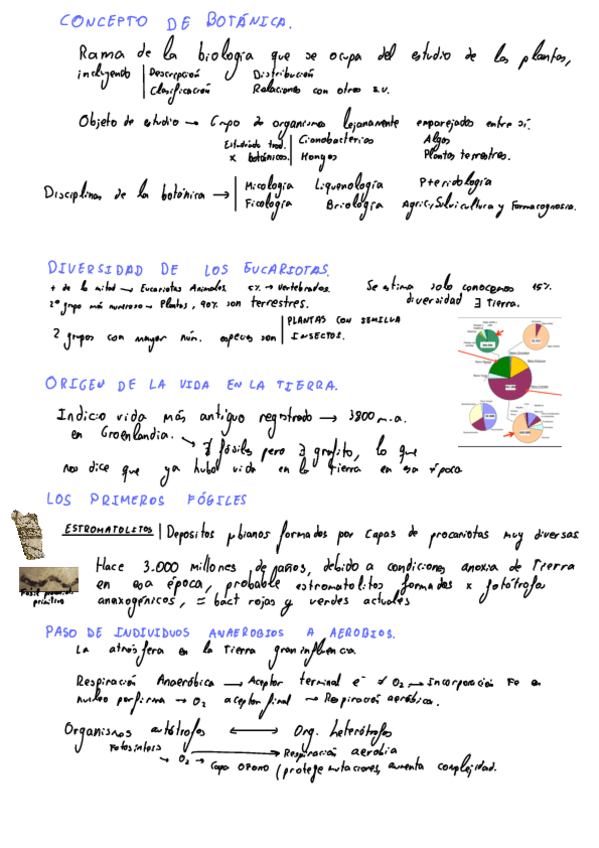 CONCEPTO DE BOTÁNICA.
Rama de la biología que se ocupa del estudio de las plantas,
incluyendo | Descripción Distribución
Clasificación Relaciones con otros s.v.
Objeto de estudio → Grupo de organismos lejanamente emparejados entre sí.
Estudiado trad. | Cianobacterias Algas
x botánicos. | Hongos Plantas terrestres.
Disciplinas de la botánica → | Micología Liquenología Pteridología
Ficología Briología Agric, Silvicultura y Farmacognosia.
DIVERSIDAD DE LOS EUCARIOTAS.
+ de la mitad → Eucariotas Animales 5% → vertebrados. Se estima solo conocemos 15%
2º grupo más numeroso → Plantas, 90% son terrestres. diversidad ∃ Tierra.
2 grupos con mayor núm. especies son | PLANTAS CON SEMILLA
INSECTOS.
ORIGEN DE LA VIDA EN LA TIERRA.
Indicio vida más antiguo registrado → 3800 m.a.
en Groenlandia. → ∄ fósiles pero ∃ grafito, lo que
nos dice que ya hubo vida en la Tierra en esa época
LOS PRIMEROS FÓSILES
ESTROMATOLITOS | Depositos μbianos formados por capas de procariotas muy diversas.
Hace 3.000 millones de años, debido a condiciones anoxia de Tierra
en esa época, probable estromatolitos formados x fotótrofa
anoxogénicos, = bact rojas y verdes actuales
primitivo
PASO DE INDIVIDUOS ANAEROBIOS A AEROBIOS.
La atmósfera en la Tierra gran influencia
Respiración Anaeróbica → Aceptor terminal e⁻ ≠ O₂ → Incorporación Fe a
nucleo porfirina → O₂ aceptor final → Respiración aeróbica.
Organismos autótrofos ↔ Org. heterótrofos
Fotosíntesis
→ O₂ → Respiración aerobia
Capa OZONO (protege mutaciones, aumenta complejidad.